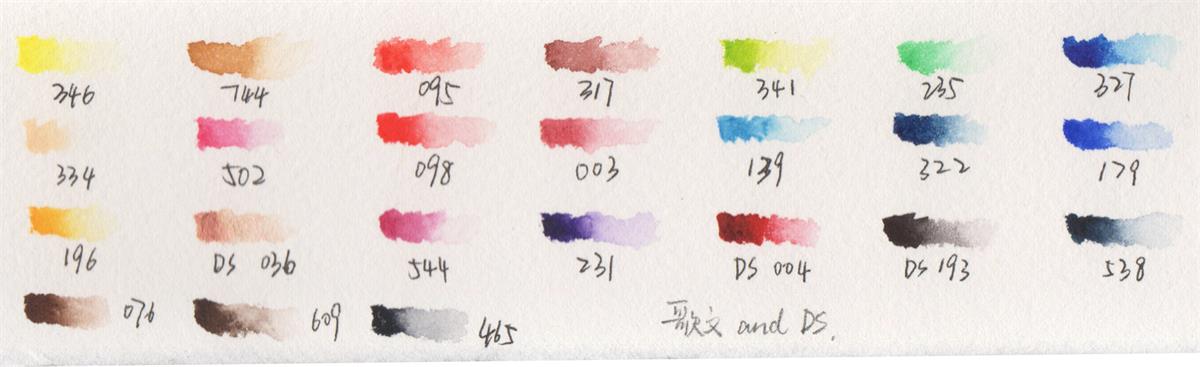 346 744 095 317 341 235 327
334 502 098 003 139 322 179
196 DS 036 544 231 DS 004 DS 193 538
076 609 465 歌文 and DS.